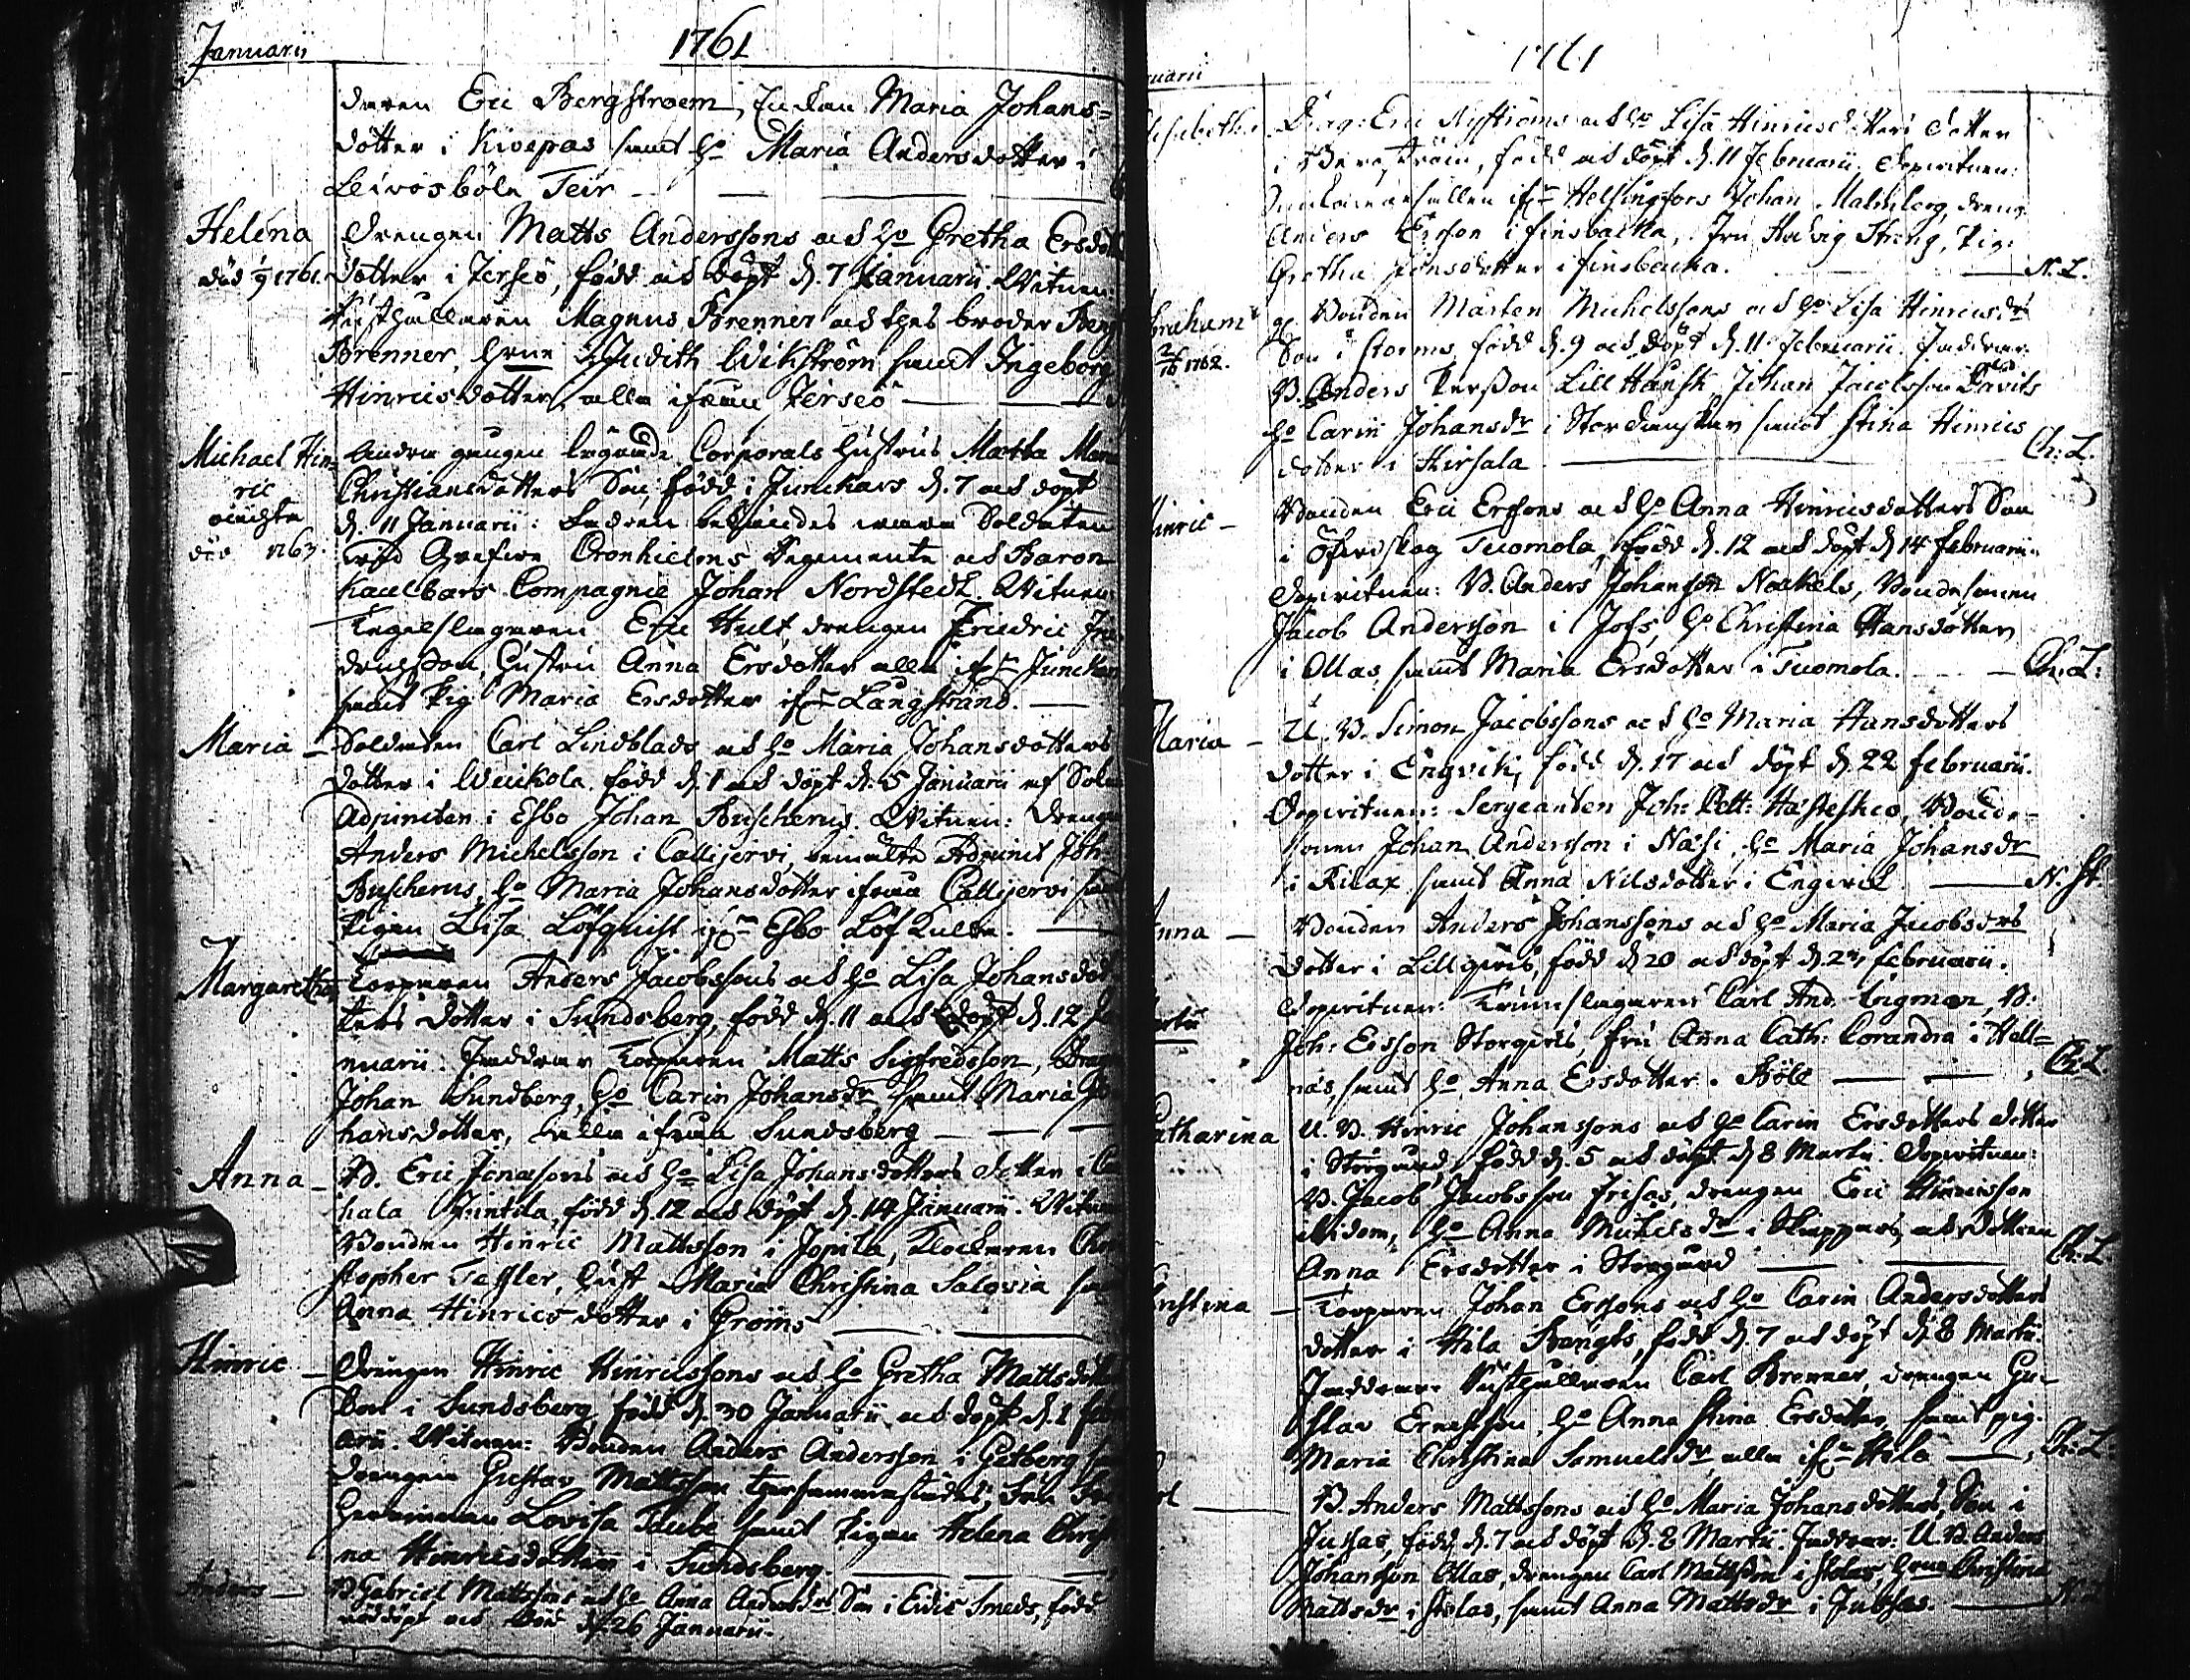 Januarii
1761
Eric Bergstroem, Enkan Maria Johans=
dotter i Kivepas samt H:o Maria Andersdotter i
Leivosböle Teir
Helena
död 1761.
Drengen Matts Anderssons och H:o Gretha Ersdott
dotter i Jerseö, född och döpt d. 7 Januarii. Witnen:
Magnus Brenner och thes broder Beng
Brenner, Judith Wikström samt Ingeborg
Hinricsdotter, alla ifrån Jerseö
Michael Hin=
ric
oächta
död 1763.
Andra gången lägrade Corporals hustrus Martha Mar
Christiansdotters Son, född i Junckars d. 7 och döpt
d. 11 Januarii: Fadren Soldaten
wid Grefwe Cronhielms Regemente och Baron
Kaulbars Compagnie Johan Nordstedt. Witnen:
Tegelslagaren Eric Hult, drengen Friedric Fri
dricsson, hustru Anna Ersdotter alla ifrån Junckars
samt Pig. Maria Ersdotter ifrån Långstrand.
Maria
Soldaten Carl Lindblads och H:o Maria Johansdotters
dotter i Weikola född d. 1 och döpt d. 5 Januarii af
Adjuncten i Esbo Johan Buscherus. Witnen: Drenge
Anders Michelsson i Callijervi, bemälte Adjunct Joh
Buscherus, H:o Maria Johansdotter ifrån Callijervi samt
Pigan Lisa Löfquist ifrån Esbo Löfkulla.
Margaretha
Torparen Anders Jacobssons och H:o Lisa Johansdot
ters dotter i Sundsberg, född d. 11 och döpt d. 12 Ja
nuarii. Faddrar Torparen Matts Sigfredsson, Dreng
Johan Sundberg, H:o Carin Johansdr samt Maria Jo
hansdotter, alla ifrån Sundsberg
Anna
B. Eric Jonassons och H:o Lisa Johansdotters dotter i
hala Juntila, född d. 12 och döpt d. 14 Januarii. Witnen
Bonden Hinric Mattsson i Jopila, Klockaren Chri
stopher Tessler, hust. Maria Christina Salovia samt
Anna Hinricsdotter i Groms
Hinric
Drengen Hinric Hinricssons och H:o Gretha Mattsdott
Son i Sundsberg, född d. 30 Januarii och döpt d. 1 Febr
arii. Witnen: Bonden Anders Andersson i Getberg
drengen Gustav Mattsson
Lovisa Taube samt Pigan Helena Christi
na Hinricsdotter i Sundsberg.
Anders
B. Gabriel Mattssons och H:o Anna Andersdrs Son i Evis Smeds, född
nöddöpt och död d. 26 Januarii.
1761
uarii
lisabetha
Drag: Eric Nyströms och H:o Lisa Hinricsdotters dotter
i, född och döpt d. 11 Februarii. Dopwitnen:
ifrån Helsingfors Johan Malmberg, dreng.
Anders Ersson i finsbacka, Fru Hedvig Streng, Pig:
Gretha Jönsdotter i finsbacka.
N. L.
braham
1762.
Bonden Mårten Michelssons och H:o Lisa Hinricsdrs
Son i Storms, född d. 9 och döpt d. 11 Februarii. Faddrar
B. Anders Persson Lill Hansk, Johan Jacobsson Davits
H:o Carin Johansdr i samt Stina Hinrics
dotter i Hirsala
Ch: L.
inric
Bonden Eric Erssons och H:o Anna Hinricsdotters Son
i Öfverskog Tuomola, född d. 12 och döpt d. 14 Februarii.
Dopwitnen: B. Anders Johansson Nackels, Bondesonen
Jacob Andersson i Jofs, H:o Christina Hansdotter
i Ollas, samt Maria Ersdotter i Tuomola.
Ch: L:
Maria
U. B. Simon Jacobssons och H:o Maria Hansdotters
dotter i Engvik, född d. 17 och döpt d. 22 Februarii.
Dopwitnen: Sergeanten Joh: Hästesko, Bonde-
sonen Johan Andersson i Näsi, H:o Maria Johansdr
i Rilax samt Anna Nilsdotter i Engvick
N. St.
nna
Bonden Anders Johanssons och H:o Maria Jacobsdrs
dotter i Lillgers, född d. 20 och döpt d. 24 Februarii.
Dopwitnen: Trumslagaren Carl And. Engman, B.
Joh: Ersson Storgers, fru Anna Cath: Corandra i Hell=
näs, samt H:o Anna Ersdotter. Böle
Ch: L
Martii
atharina
U. B. Hinric Johanssons och H:o Carin Ersdotters dotter
i Storgund, född d. 5 och döpt d. 8 Martii. Dopwitnen:
B. Jacob Jacobsson Frisas, drengen Eric Hinricsson
H:o Anna Michelsdr i Skeppars, och
Anna Ersdotter i Storgund
Ch: L
hristina
Torparen Johan Erssons och H:o Carin Andersdotters
dotter i Hila Bengts, född d. 7 och döpt d. 8 Martii.
Faddrar: Carl Brenner, drengen Gu-
stav Ernestson, H:o Anna Stina Ersdotter samt pig.
Maria Christina Samuelsdr alla ifrån Hila
Ch: L.
rl
B. Anders Mattssons och H:o Maria Johansdotters Son i
Jussas, född d. 7 och döpt d. 8 Martii. Faddrar: U. B. Anders
Johansson Ollas, drengen Carl Mattsson i Stolas, Christina
Mattsdr i Stolas, samt Anna Mattsdr i Jussas.